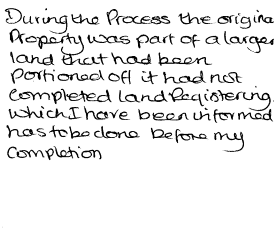 During the Process the origina
Property was part of a large
land that had been
Portioned off it had not
completed land Registering.
which I have been informed
has to be done before my
completion